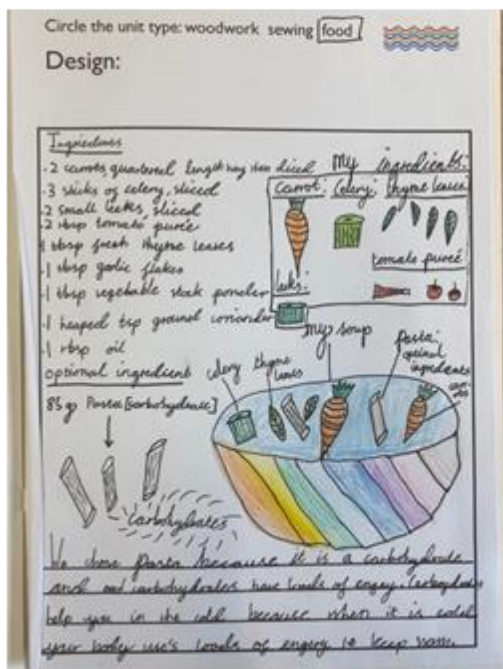 Circle the unit type: woodwork sewing food
Design:
Ingredients
- 2 carrots, quartered length way then diced
- 3 sticks of celery, sliced
- 2 small leeks, sliced
- 2 tbsp tomato purée
1 tbsp fresh thyme leaves
- 1 tbsp garlic flakes
- 1 tbsp vegetable stock powder
- 1 heaped tsp ground coriander
- 1 tbsp oil
optional ingredient
85g Pasta [carbohydrate]
carbohydrates
My ingredients:
Carrot:
Celery:
thyme leaves
tomato pureé
leeks:
my soup
celery
thyme leaves
Pasta:
optional
ingredients
We chose pasta because it is a carbohydrate
and carbohydrates have loads of enegy. Carbohydrates
help you in the cold because when it is cold
your body use's loads of engery to keep warm.